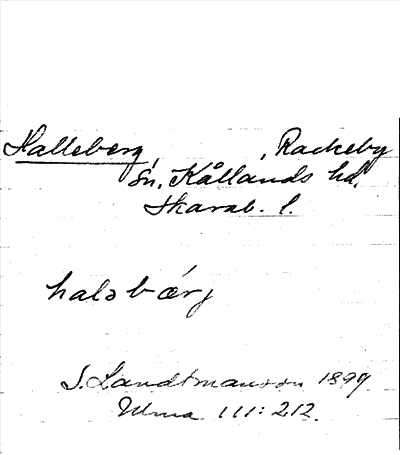 Halleberg, , Rackeby
Sn, Kållands hd.
Skarab. l.
haləbǽrj
S. Landtmanson 1899
Ulma 111:212.